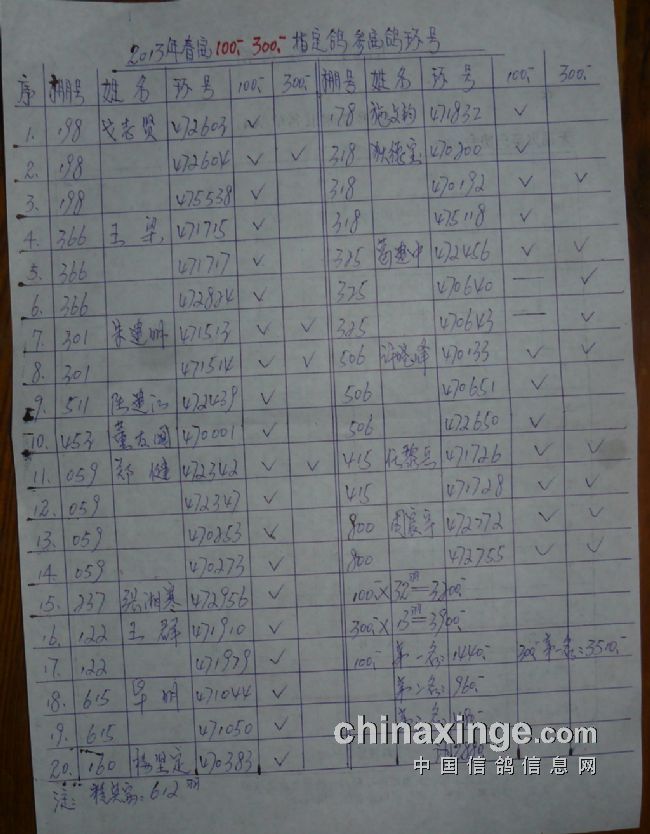 2013年春赛100.- 300.- 指定鸽参赛鸽环号
序 棚号 姓名 环号 100.- 300.- 棚号 姓名 环号 100.- 300.-
1. 198 戈志贤 472603 ✓ 178 施文钧 471832 ✓
2. 198 472604 ✓ ✓ 318 狄德宝 470200 ✓
3. 198 475538 ✓ 318 470192 ✓ ✓
4. 366 王梁 471715 ✓ 318 475118 ✓
5. 366 471717 ✓ 325 葛建中 472456 ✓ ✓
6. 366 472824 ✓ 325 470640 — ✓
7. 301 朱建明 471513 ✓ ✓ 325 470643 — ✓
8. 301 471514 ✓ ✓ 506 许晓峰 470133 ✓ ✓
9. 511 陆建江 472439 ✓ 506 470651 ✓
10. 453 董友国 470001 ✓ 506 472650 ✓
11. 059 郑健 472342 ✓ ✓ 415 任黎兵 471726 ✓ ✓
12. 059 472347 ✓ 415 471728 ✓ ✓
13. 059 470253 ✓ 800 周震华 472772 ✓ ✓
14. 059 470273 ✓ 800 472755 ✓ ✓
15. 237 张湘寒 472956 ✓ 100.- × 32羽=3200.-
16. 122 王群 471910 ✓ 300.- × 13羽=3900.-
17. 122 471979 ✓ 100.- 第一名:1440.- 300.- 第一名:3510.-
18. 615 毕明 471044 ✓ 第二名:960.-
19. 615 471050 ✓ 第三名:480.-
20. 160 杨坚定 470383 ✓ 2880.-
注: 精英赛:612羽
chinaxinge.com
中国信鸽信息网